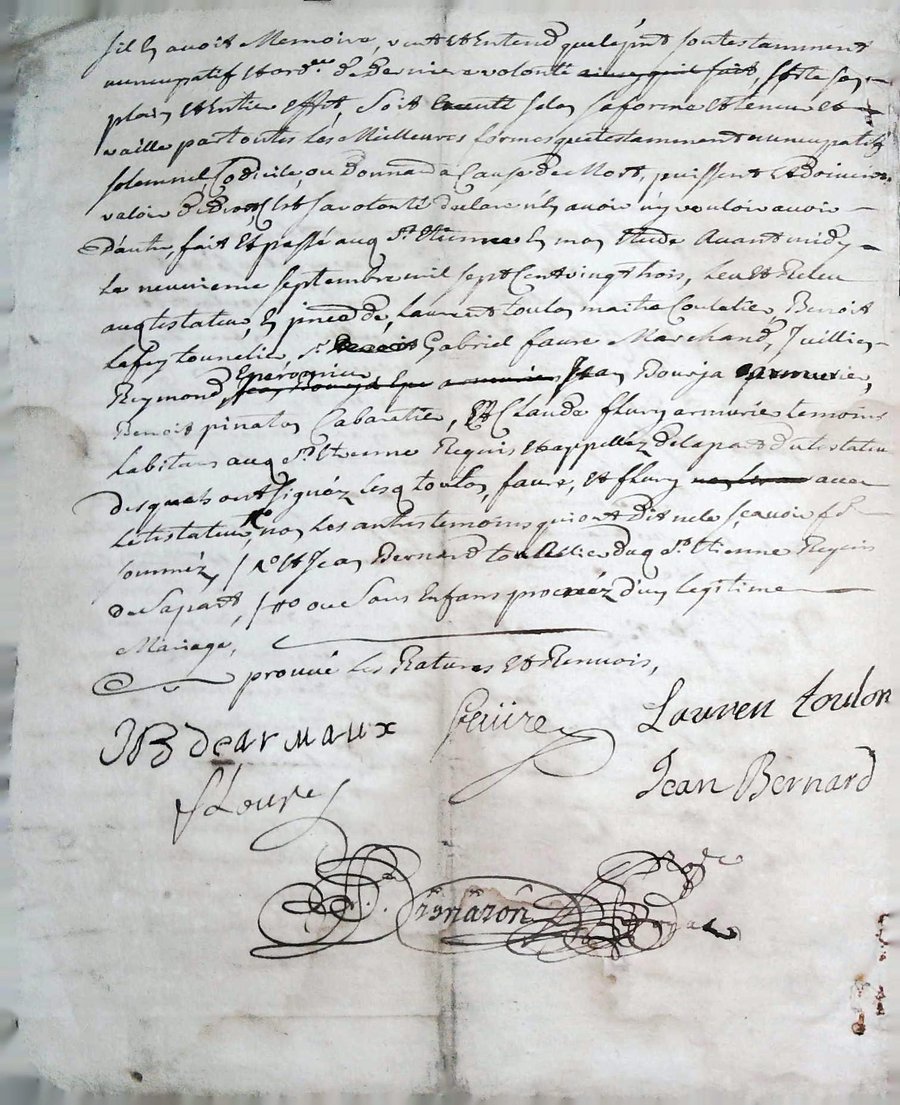 sil en avoit Memoire, veut et Entend que le pnt son testamment
nuncupatif et ord.re de derniere volonté ainsy quil fait, sorte son
plain et Entier effet, Soit Executé selon sa forme et teneur et
vaille par toutes Les Meilleures formes que testamment nuncupatif
solemnel, Codicile, ou Donnaōn a Cause de Mort, puissent et doivent
valoir de droit, C'est sa volonté declare n'en avoir ny vouloir avoir
D'autre, fait Et passé aud St. Etienne En mon Etude Avant midy
Le neuvieme septembre mil sept Cent vingt trois, Leu et Releu
aud testateur, En pnce de, Laurent toulon maitre Coutelier, Benoit
Lafay tounelier, Sr. Gabriel faure Marchand, Juillien
Reymond, Eperonnier, Jean Bourja armurier,
Benoit pinaton Cabaretier, Et Claude fleury armurier temoins
habitans aud St. Etienne Requis et appellez de la part du testateur
desquels ont signéz Lesd toulon, faure, et fleury avec
Le testateur, non Les autres temoins qui ont dit ne le sçavoir
sommez, / et Jean Bernard dud St. Etienne Requis
de sa part, / ou Sans Enfans procréez d'un legitime
Mariage,
prouvé Les Ratures et Renvois,
JB dearmaux faüre Lauren toulon
fLoury Jean Bernard